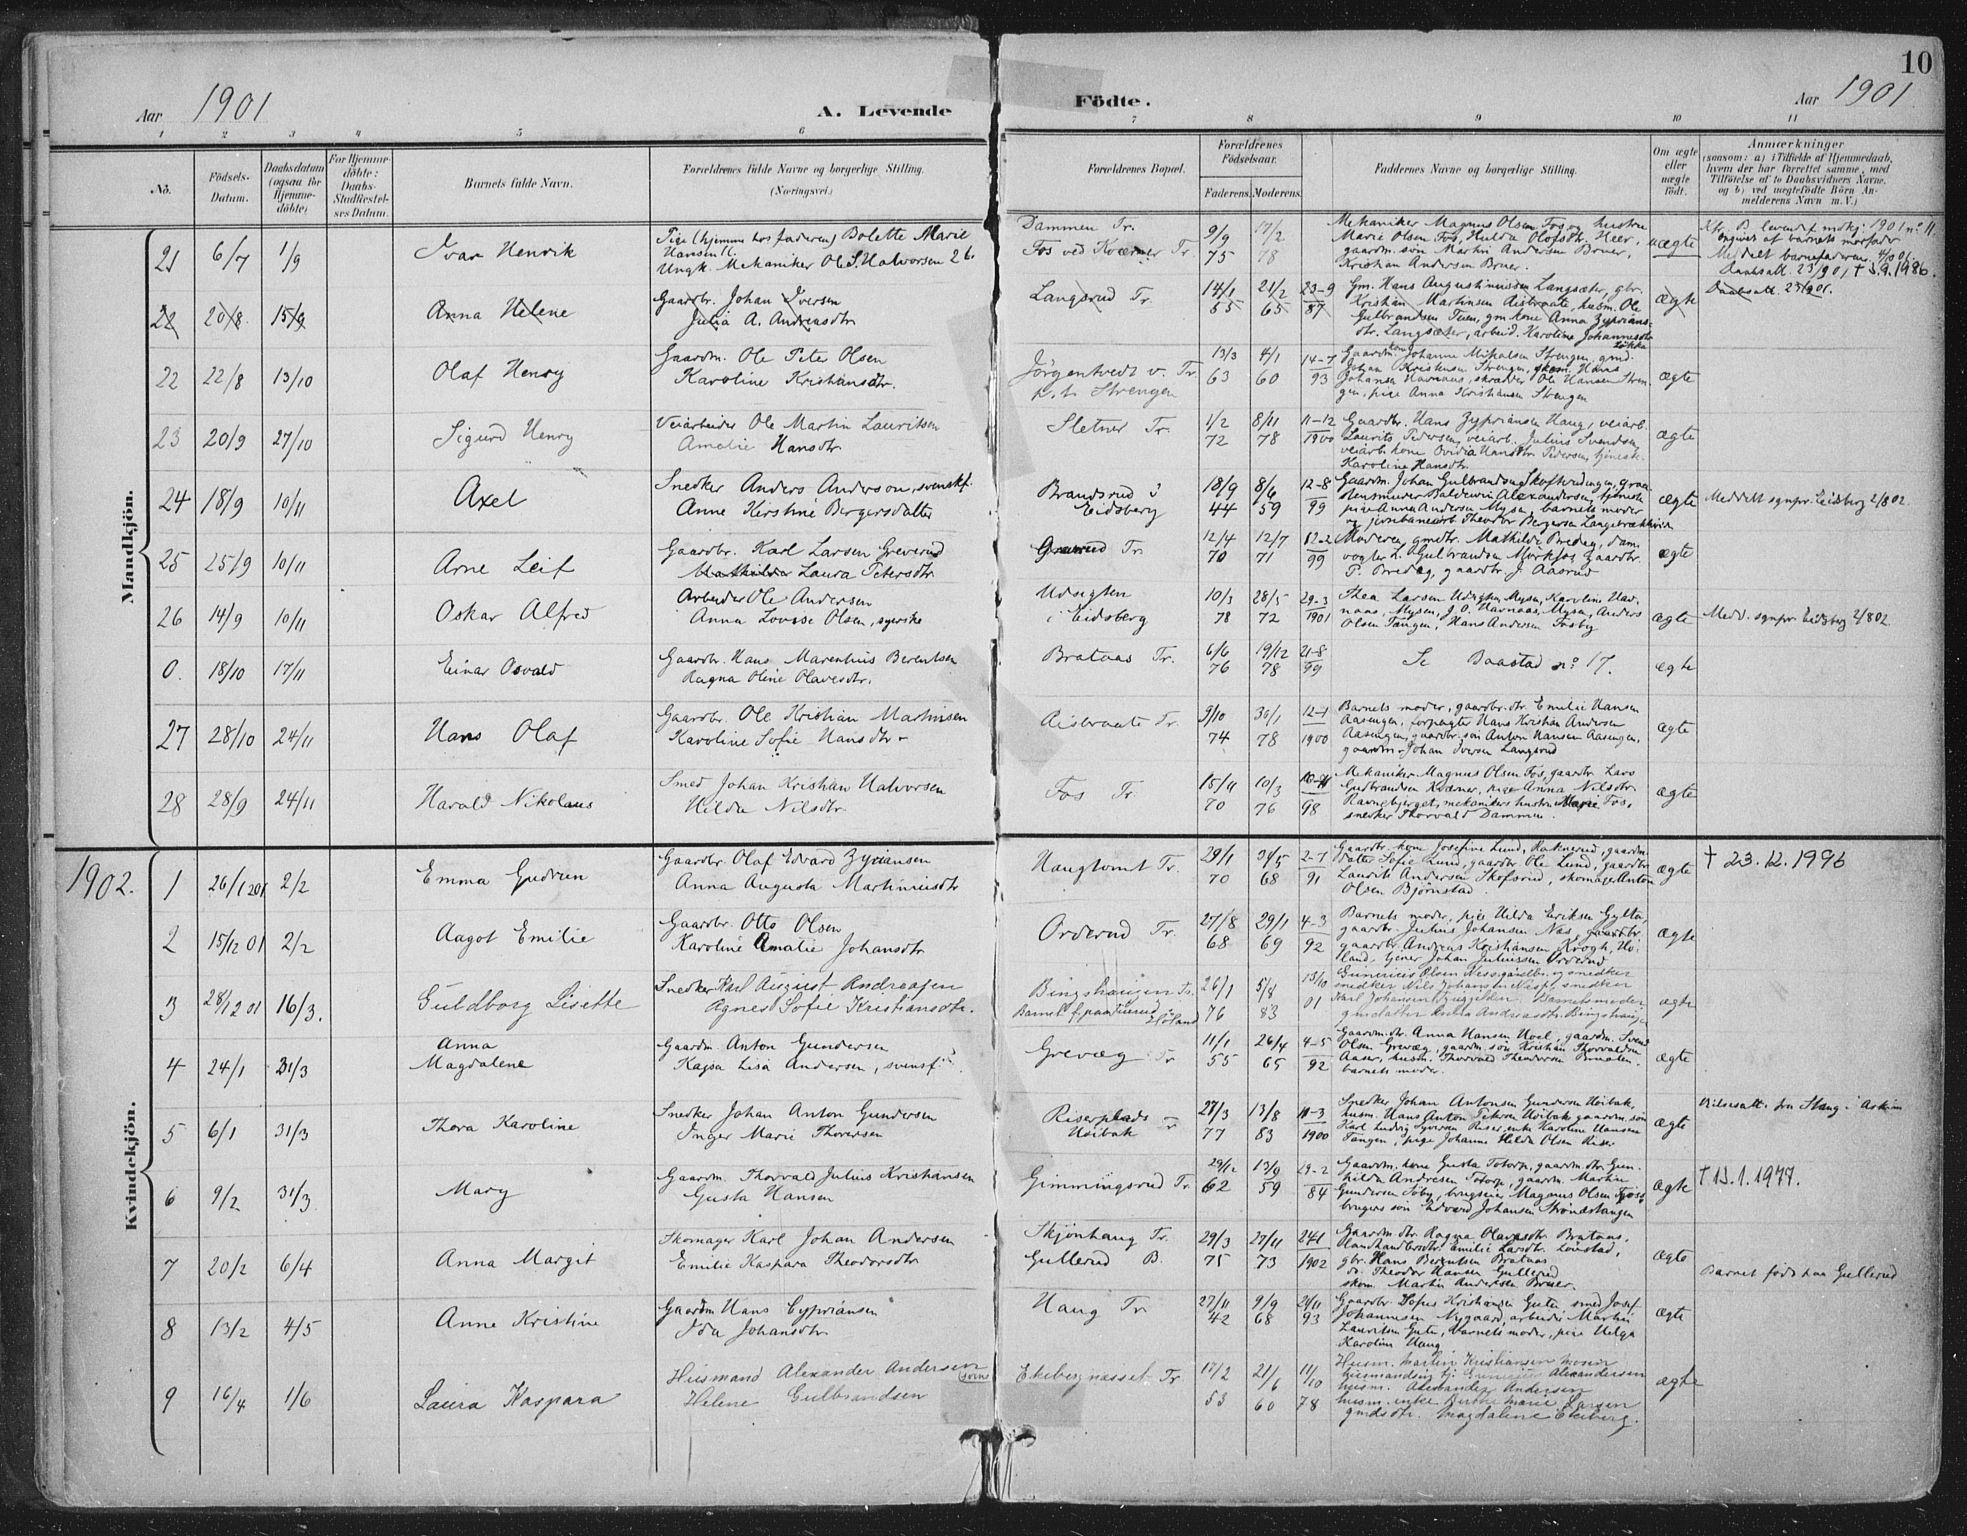 10
Aar 1901
A. Levende
Födte.
Aar 1901
1 2 3 4 5 6 7 8 9 10 11
No.
Födsels-Datum.
Daabsdatum (ogsaa for Hjemme-döbte)
For Hjemme-döbte: Daabs-Stadfæstel-ses Datum.
Barnets fulde Navn.
Forældrenes fulde Navne og borgerlige Stilling. (Næringsvei.)
Forældrenes Bopæl.
Forældrenes Födselsaar.
Faderens. Moderens.
Faddernes Navne og borgerlige Stilling.
Om ægte eller uægte födt.
Anmærkninger
(saasom: a) i Tilfælde af Hjemmedaab, hvem der har forrettet samme, med Tilföielse af to Daabsvidners Navne, og b) ved uegtefödte Börn An-melderens Navn m. V.)
Mandkjön.
21 6/7 1/9 Ivar Henrik
Pige (hjemme hos faderen) Bolette Marie Hansen
Ungk. Mekaniker Ole S. Halvorsen 26.
Dammen Tr.
Fos ved Kværner Tr.
9/9 75 17/2 78
Mekaniker Magnus Olsen Fos og hustru
Marie Olsen Fos, Hilda Olofsdtr. Heer,
gaardm. søn Martin Andersen Bruer,
Kristian Andersen Bruer.
uægte
Meddelt barnefaderen
Daabsatt. 23/9 01 † 5.9.1986.
22 20/8 15/9 Anna Helene
Gaardbr. Johan Iversen
Julia A. Andreasdtr
Langsrud Tr.
14/1 55 21/2 65 23-9 87
Gm. Hans Augustinussen Langsæter, gbr.
Kristian Martinsen Aisbraate, husm. Ole
Gulbrandsen Tuen, gm. kone Anna Zyprians-
dtr. Langsæter, arbeid. Karoline Johannesdtr
Løkka
ægte
Daabsatt. 23/9 01.
22 22/8 13/10 Olaf Henry
Gaardm. Ole Peter Olsen
Karoline Kristiansdtr.
Jörgentvedt v. Tr.
p.t. Strengen
13/3 63 4/1 60 14-7 93
Gaardm. kone Johanne Mikalsen Strengen, gmd.
Johan Kristensen Strengen, skom. Hans
Johansen Havnaas, skrædder Ole Hansen Stren-
gen, pige Anna Kristiansen Strengen
ægte
23 20/9 27/10 Sigurd Henry
Veiarbeider Ole Martin Lauritsen
Amalie Hansdtr
Sletner Tr.
1/2 72 8/11 78 11-12 1900
Gaardbr. Hans Zypriansen Haug, veiarb.
Laurits Pedersen, veiarb. Julius Svendsen,
veiarb. kone Ovidia Hansdtr Pedersen, tjenestk.
Karoline Hansdtr.
ægte
24 18/9 10/11 Axel
Snedker Anders Anderson, svensk f.
Anne Kerstine Bergersdatter
Brandsrud i
Eidsberg
18/9 44 8/6 59 12-8 99
Gaardm. Johan Gulbrandsen Skofthvedingen, graa-
stensminer Baldewin Alexandersen, tjeneste-
pige Anna Andersen Mysen, barnets moder
og jernbanearb. Theodor Bergersen Langebrække
ægte
Meddelt sgnpr. Eidsberg 2/8 02
25 25/9 10/11 Arne Leif
Gaardbr. Karl Larsen Greverud
Mathilde Laura Petersdtr
Graverud Tr.
12/4 70 12/7 71 12-2 99
Moderen, gmdtr. Mathilde Bredeg, dam-
vogter L. Gulbrandsen Mørkfos, gaardbr.
P. Bredeg, gaardbr. J. Aasrud
ægte
26 14/9 10/11 Oskar Alfred
Arbeider Ole Andersen
Anna Lovise Olsen, syerske
Udsigten
i Eidsberg
10/3 78 28/5 72 29-3 1901
Thea Larsen Udsigten, Mysen, Karoline Hav-
naas, Mysen, J. O. Havnaas, Mysen, Anders
Olsen Tangen, Hans Andersen Fosby
ægte
Medd. sgnpr. Eidsberg 2/8 02.
0. 18/10 17/11 Einar Osvald
Gaardbr. Hans Marenhius Berentsen
Ragna Oline Olavesdtr.
Brataas Tr.
6/6 76 19/12 78 21-8 99
Se Baastad no. 17.
ægte
27 28/10 24/11 Hans Olaf
Gaardbr. Ole Kristian Martinsen
Karoline Sofie Hansdtr
Aisbraate Tr.
9/10 74 30/1 78 12-1 1900
Barnets moder, gaardbr. dtr. Emilie Hansen
Aasengen, forpagter Hans Kristian Andersen
Aasengen, gaardbr. søn Anton Hansen Aasengen,
gaardm. Johan Iversen Langsrud
ægte
28 28/9 24/11 Harald Nikolaus
Smed Johan Kristian Halvorsen
Hilda Nilsdtr.
Fos Tr.
15/11 70 10/3 76 98
Mekaniker Magnus Olsen Fos, gaardbr. Lars
Gudbrandsen Kværner, pige Anna Nilsdtr.
Ravnebjerget, mekanikers hustru Marie Fos,
snedker Thorvald Dammen.
ægte
1902.
Kvindekjön.
1 26/12 01 2/2 Emma Gudrun
Gaardbr. Olaf Edvard Zyriansen
Anna Augusta Martiniusdtr
Haugtomt Tr.
29/1 70 31/5 68 2-7 91
Gaardbr. kone Josefine Lund, Raknerud, gaardm.
datter Sofie Lund, gaardbr. Ole Lund, gaardbr.
Laurits Andersen Skofsrud, skomager Anton
Olsen Bjørnstad.
ægte
† 23.12.1996
2 15/12 01 2/2 Aagot Emilie
Gaardbr. Otto Olsen
Karoline Amalie Johansdtr
Orderud Tr.
27/8 68 29/1 69 4-3 92
Barnets moder, pige Hilda Eriksen Gylta
gaardbr. Julius Johansen Næs, gaardbr.
gaardbr. Andreas Kristiansen Krogh, Hø-
land, tjener Johan Juliussen Orderud
ægte
3 28/12 01 16/3. Guldborg Lisette
Snedker Karl August Andreasen
Agnes Sofie Kristiansdtr.
Bingshaugen Tr.
Høland
26/1 76 5/8 83 13/10 01
snedker Nils Johansen Næss,
Karl Johansen Tyggelden, Barnets moder
ægte
4 24/1 31/3 Anna
Magdalene
Gaardm. Anton Gundersen
Kajsa Lisa Andersen, svensk f.
Grevæg Tr
11/1 55 26/4 65 4-5 92
Gaardm. dtr. Anna Hansen Hoel, gaardm. Svend
Olsen Grevæg, gaardm. søn Kristian Thorvaldsen
Aaser, husm. Thorvald Theodorsen Braaten
barnets moder.
ægte
5 6/1 31/3 Thora Karoline
Snedker Johan Anton Gundersen
Inger Marie Thoresen
Riserplads
Høibak Tr
27/3 77 13/8 83 11-3 1900
Snedker Johan Antonsen Gundersen Høibak,
husm. Hans Anton Petersen Høibak, gaardm. søn
Karl Ludvig Syversen Riser, enke Karoline Hansen
Tangen, pige Johanne Hilda Olsen Riser
ægte
Vielsesatt. fra Stang i Askim
6 9/2 31/3 Mary
Gaardm. Thorvald Julius Kristiansen
Gusta Hansen
Gimmingsrud Tr.
29/12 62 13/9 59 29-2 84
Gaardm. kone Gusta Totorp, gaardm. dtr. Gun-
hilda Andresen Totorp, gaardm. Martin
Gundersen Toby, brugseier Magnus Olsen Fos
brugers søn Edvard Johansen Strøndstangen
ægte
† 13.1.1977.
7 20/2 6/4 Anna Margit
Skomager Karl Johan Andersen
Emilie Kaspara Theodorsdtr
Skjönhaug Tr.
Gullerud B.
29/3 75 27/11 73 24/1 1902
Gaardm. dtr. Ragna Olavesdtr. Brataas,
Landhandlerdtr. Emilie Larsdtr.
gbr. Hans Berentsen Brataas
do. Theodor Hansen Gullerud
skom. Martin Andersen Bruer.
ægte
Barnet født paa Gullerud
8 13/2 4/5 Anne Kristine
Gaardm Hans Cypriansen
Ida Johansdtr
Haug Tr
27/11 42 9/9 68 21/11 93
Gaardbr. Sofus Kristiansen Guten, smed Josef
Johannesen Nygaard, arbeider Martin
Lauritsen Guten, barnets moder, pige Helga
Karoline Haug
ægte
9 16/4 1/6 Laura Kaspara
Husmand Alexander Andersen
Helene Gulbrandsen
Ekebergnæsset Tr
17/2 53 21/6 60 11/10 78
Husm. Martin Kristiansen Mosen
husm. Alexander Andersen
husm. enke Berthe Marie Larsen
gmdsdtr. Magdalene Ekeberg.
ægte